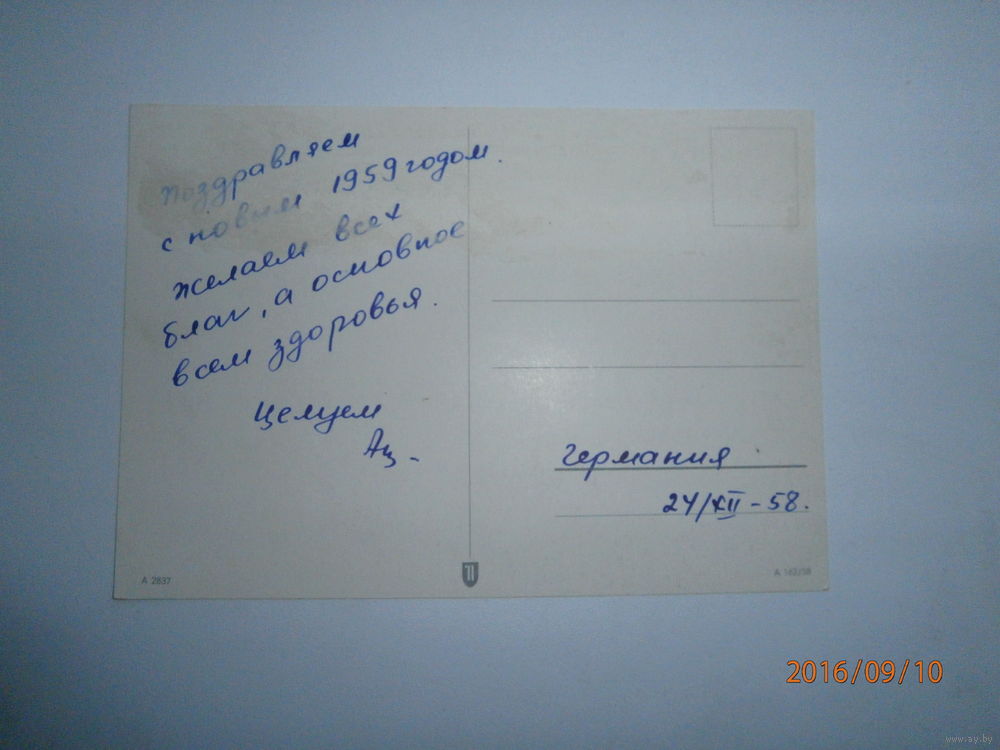 Поздравляем
с новым 1959 годом.
желаем всех
благ, а основное
всем здоровья.
Целуем
Германия
24/XII-58.
A 2837
A 162/58
2016/09/10
www.ay.by